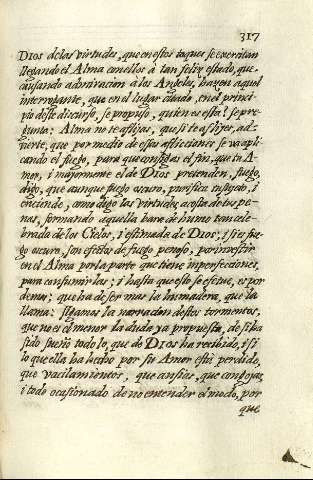 317
DIOS delas virtudes, que en estos toques se exercitan
llegando el Alma con ellos à tan feliz estado, que
causando admiracion a los Angeles, hazen aquel
interrogante, que en el lugar citado, en el princi-
pio deste discurso, se propuso, quien es esta? se pre-
gunta: Alma no te aflijas, que si te aflijes, ad-
vierte, que por medio de essas aflicciones se va apli-
cando el fuego, para que consigas el fin, que tu A-
mor, i maiormente el de DIOS pretenden, fuego,
digo, que aunque fuego oscuro, purifica i
enciende, como digo las virtudes, acosta de tus pe-
nas, formando aquella bara de humo tan cele-
brada de los Cielos, i estimada de DIOS; i si es fue-
go oscuro, son efectos de fuego penoso, por investir
en el Alma por la parte que tiene inperfecciones,
para consumirlas; i hasta que esto se efetue, es por
demas; que ha de ser mas la humadera, que la
llama: sigamos la narracion destos tormentos,
que no es el menor la duda ya propuesta, de si ha
sido sueño todo lo, que de DIOS ha recibido, i si
lo que ella ha hecho por su Amor està perdido,
que vacilamientos, que ansias, que congojas,
i todo ocasionado de no entender el modo, por
que